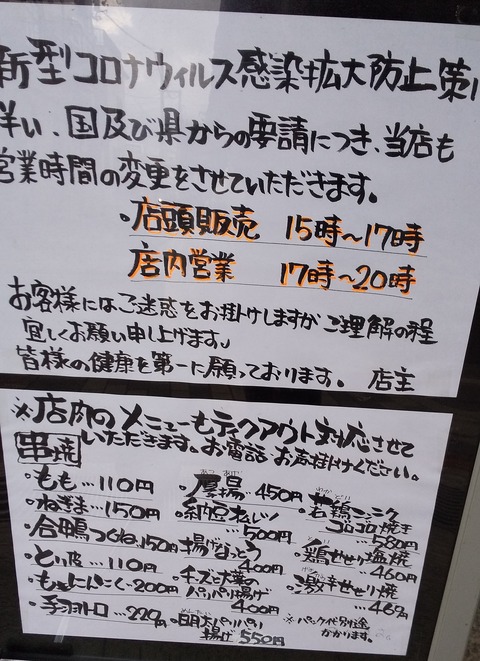 新型コロナウィルス感染拡大防止策に
伴い、国及び県からの要請につき、当店も
営業時間の変更をさせていただきます。
・店頭販売 15時〜17時
店内営業 17時〜20時
お客様にはご迷惑をお掛けしますが ご理解の程
宜しくお願い申し上げます。
皆様の健康を第一に願っております。 店主
※店内のメニューもテイクアウト対応させて
いただきます。お電話、お声掛けください。
串焼
・もも…110円
・ねぎま…150円
・合鴨つくね…150円
・とり皮…110円
・ももにんにく…200円
・手羽トロ…220円
・厚揚 450円
あつ あげ
・納豆
500円
・揚げなっとう
400円
・チーズと大葉の
パリパリ揚げ
400円
・明太パリパリ
揚げ 550円
・若鶏ニンニク
わか どり
ゴロゴロ焼き
…580円
・鶏せせり塩焼
…460円
・激辛せせり焼
※パック代別途
かかります。